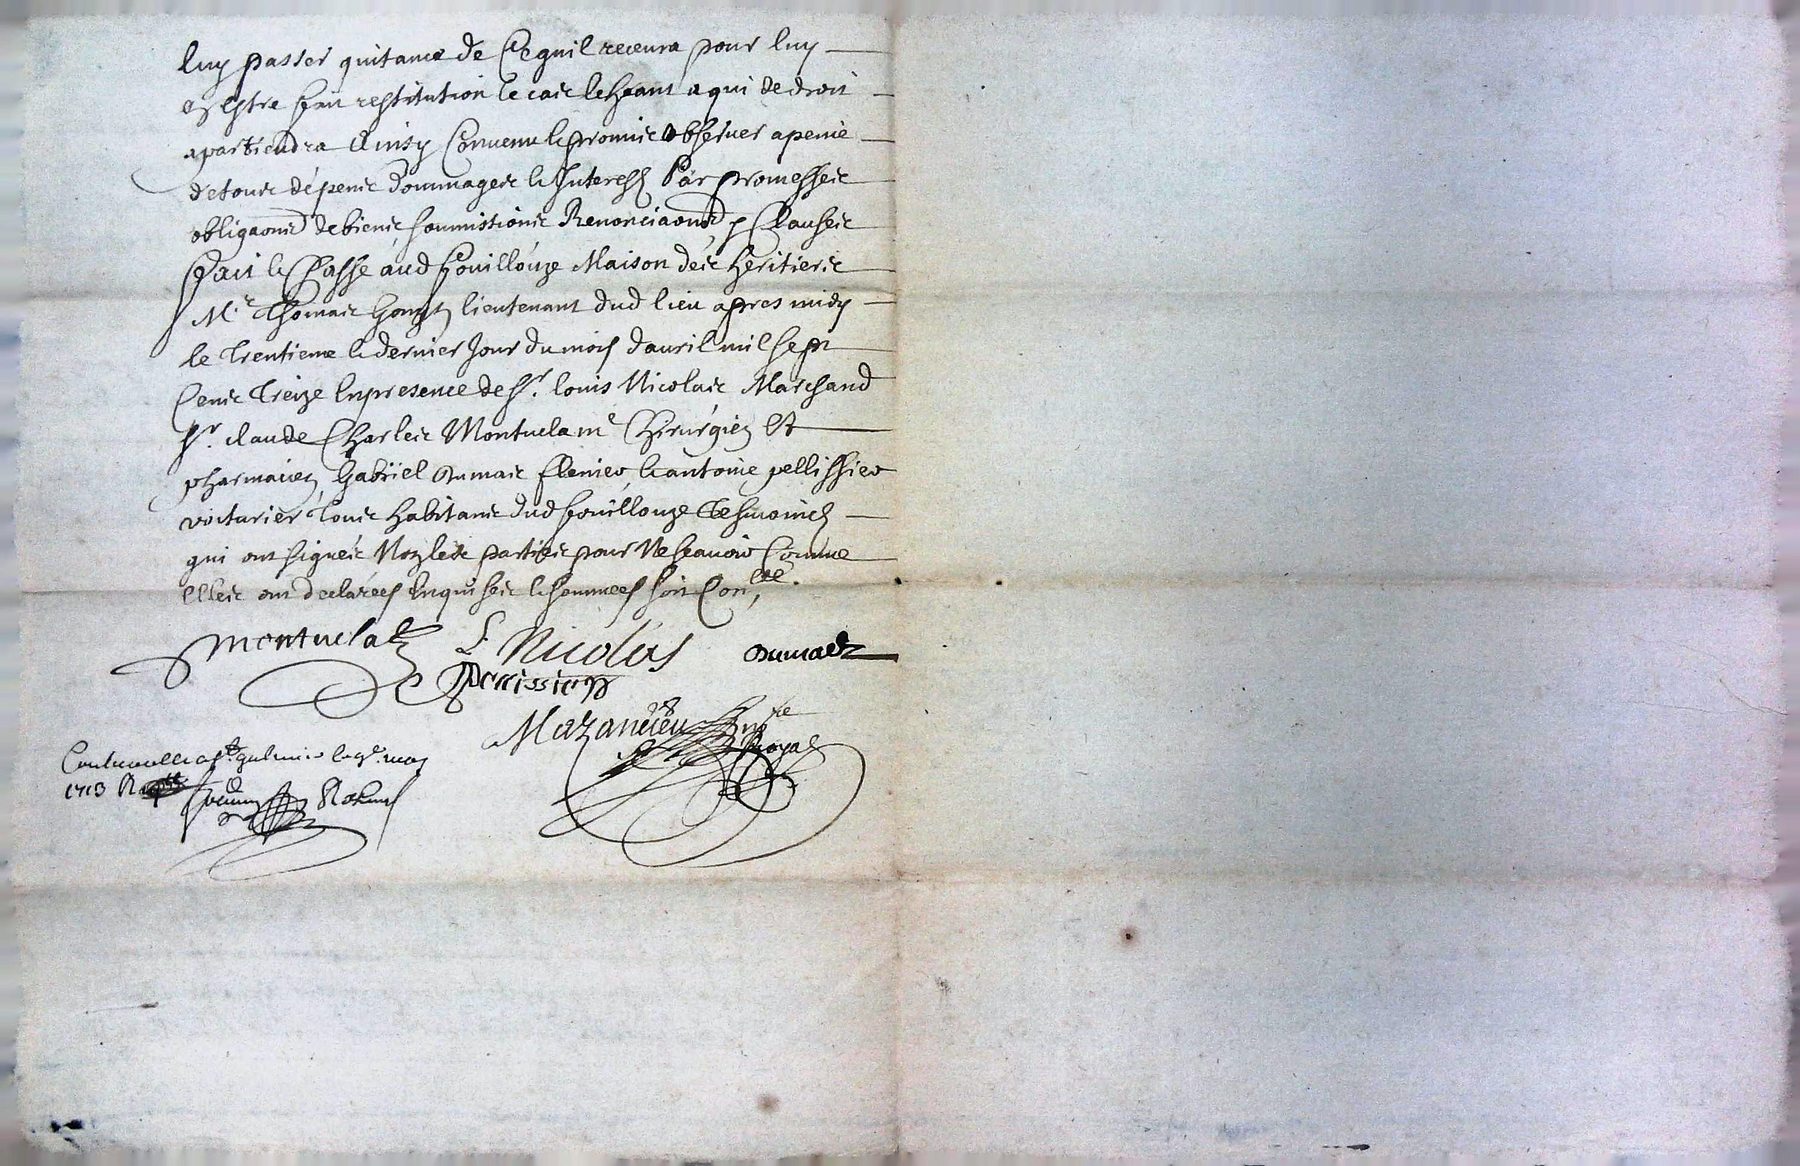 luy passer quitance de Ce quil recevra pour luy
en estre fait restitution le cas escheant a qui de droit
apartiendra Ainsy Convenu & promis observer a peine
de tous dépens dommages & Interests Par promesses
obligaons de biens, soumissions Renonciaons & Clauses
fait & Passé aud fouillouze Maison des heritiers
Mr. Thomas lieutenant dud lieu apres midy
le Trentieme & dernier Jour du mois d'auril mil sept
Cens Treize En presence de Sr. louis Nicolas Marchand
Sr. claude Charles Montuela me Chirurgien Et
pharmacien, Gabriel Dumas & antoine pellissier
voiturier Tous habitans dud fouillouze Tesmoins
qui ont signés Non les parties pour Ne scavoir Comme
Elles ont declarées Enquises & sommées soit Conlle.
Montuela
L Nicolas
Dumas
Pellissier
Mazandieu nre
Royal
Contreroollé a St. galmier le may
1713 R